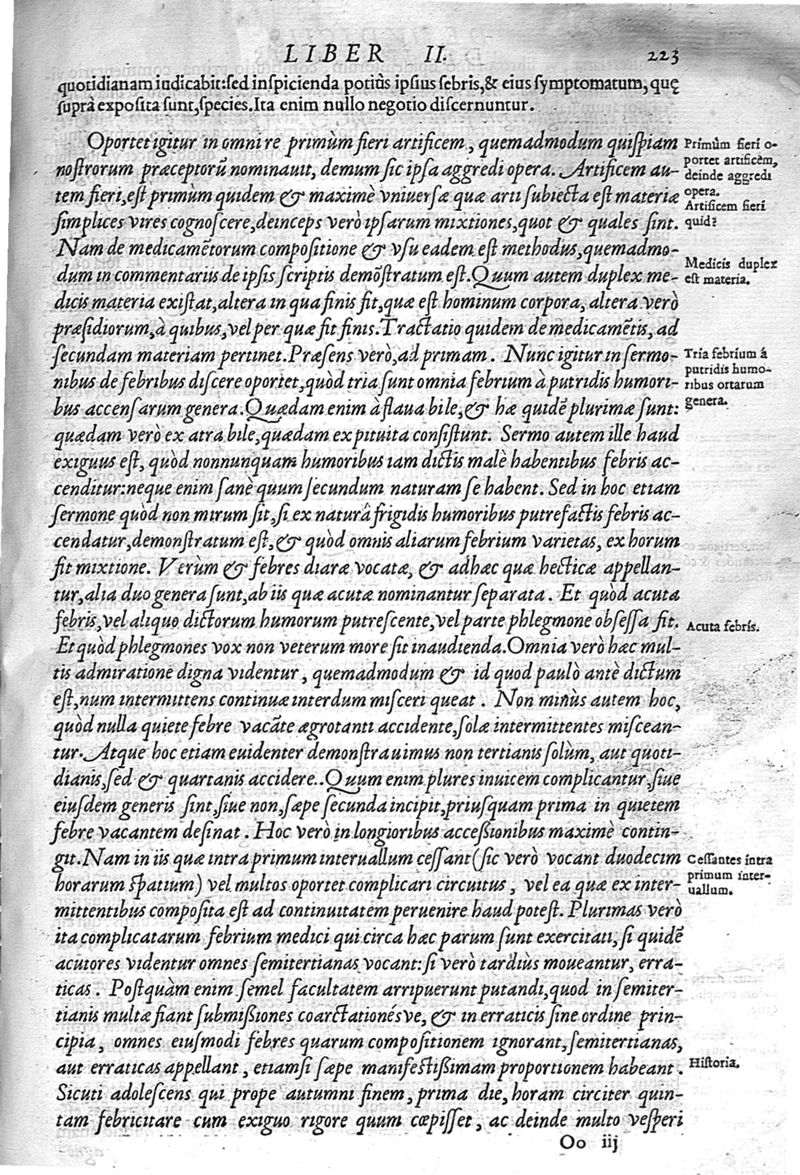 LIBER II. 223
quotidianam iudicabit: sed inspicienda potiùs ipsius febris, & eius symptomatum, quę
suprà exposita sunt, species. Ita enim nullo negotio discernuntur.
Oportet igitur in omni re primùm fieri artificem, quemadmodum quispiam
nostrorum præceptorũ nominauit, demum sic ipsa aggredi opera. Artificem au-
tem fieri, est primùm quidem & maximè vniuersæ quæ arti subiecta est materiæ
simplices vires cognoscere, deinceps verò ipsarum mixtiones, quot & quales sint.
Nam de medicamẽtorum compositione & vsu eadem est methodus, quemadmo-
dum in commentariis de ipsis scriptis demõstratum est. Quum autem duplex me-
dicis materia existat, altera in qua finis fit, quæ est hominum corpora, altera verò
præsidiorum, à quibus, vel per quæ fit finis. Tractatio quidem de medicamẽtis, ad
secundam materiam pertinet. Præsens verò, ad primam. Nunc igitur in sermo-
nibus de febribus discere oportet, quòd tria sunt omnia febrium à putridis humori-
bus accensarum genera. Quædam enim à flaua bile, & hæ quidẽ plurimæ sunt:
quædam verò ex atra bile, quædam ex pituita consistunt. Sermo autem ille haud
exiguus est, quòd nonnunquam humoribus iam dictis malè habentibus febris ac-
cenditur: neque enim sanè quum secundum naturam se habent. Sed in hoc etiam
sermone quòd non mirum sit, si ex naturâ frigidis humoribus putrefactis febris ac-
cendatur, demonstratum est, & quòd omnis aliarum febrium varietas, ex horum
fit mixtione. Verùm & febres diaræ vocatæ, & adhæc quæ hecticæ appellan-
tur, alia duo genera sunt, ab iis quæ acutæ nominantur separata. Et quòd acuta
febris, vel aliquo dictorum humorum putrescente, vel parte phlegmone obsessa fit.
Et quòd phlegmones vox non veterum more sit inaudienda. Omnia verò hæc mul-
tis admiratione digna videntur, quemadmodum & id quod paulò antè dictum
est, num intermittens continuæ interdum misceri queat. Non minùs autem hoc,
quòd nulla quiete febre vacãte ægrotanti accidente, solæ intermittentes miscean-
tur. Atque hoc etiam euidenter demonstrauimus non tertianis solùm, aut quoti-
dianis, sed & quartanis accidere.. Quum enim plures inuicem complicantur, siue
eiusdem generis sint, siue non, sæpe secunda incipit, priusquam prima in quietem
febre vacantem desinat. Hoc verò in longioribus accessionibus maximè contin-
git. Nam in iis quæ intra primum interuallum cessant (sic verò vocant duodecim
horarum spatium) vel multos oportet complicari circuitus, vel ea quæ ex inter-
mittentibus composita est ad continuitatem peruenire haud potest. Plurimas verò
ita complicatarum febrium medici qui circa hæc parum sunt exercitati, si quidẽ
acutiores videntur omnes semitertianas vocant: si verò tardiùs moueantur, erra-
ticas. Postquàm enim semel facultatem arripuerunt putandi, quod in semiter-
tianis multæ fiant submissiones coarctationésve, & in erraticis sine ordine prin-
cipia, omnes eiusmodi febres quarum compositionem ignorant, semitertianas,
aut erraticas appellant, etiamsi sæpe manifestissimam proportionem habeant.
Sicuti adolescens qui prope autumni finem, prima die, horam circiter quin-
tam febricitare cum exiguo rigore quum cœpisset, ac deinde multo vesperi
Oo iij
Primùm fieri o-
portet artificẽm,
deinde aggredi
opera.
Artificem fieri
quid?
Medicis duplex
est materia.
Tria febrium á
putridis humo-
ribus ortarum
genera.
Acuta febris.
Cessantes intra
primum inter-
uallum.
Historia.